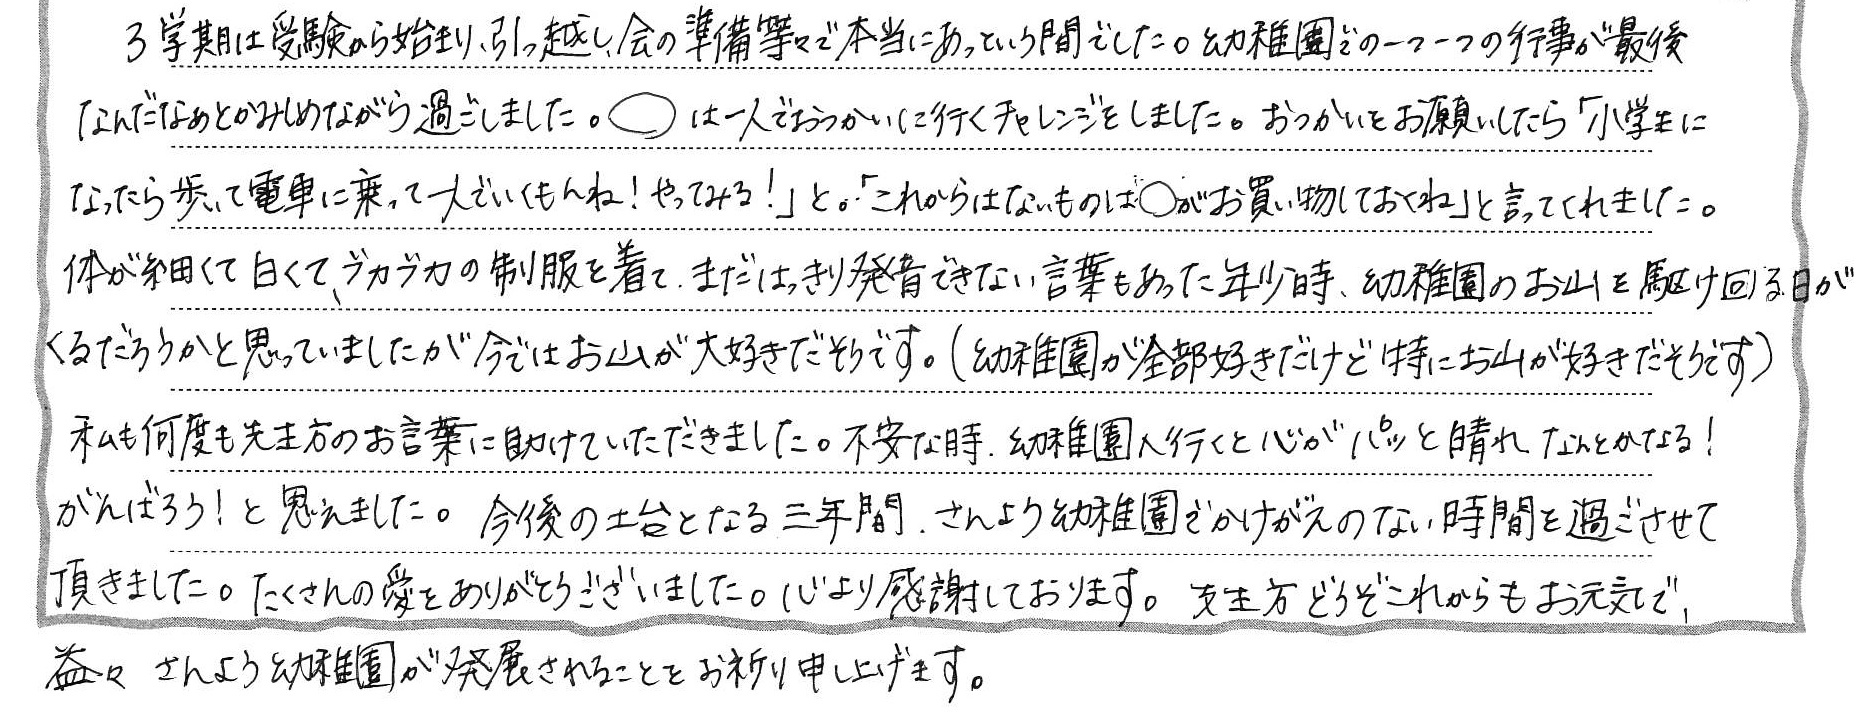 3学期は受験から始まり、引っ越し、会の準備等々で本当にあっという間でした。幼稚園での一つ一つの行事が最後
なんだなあとかみしめながら過ごしました。◯は一人でおつかいに行くチャレンジをしました。おつかいをお願いしたら「小学生に
なったら歩いて電車に乗って一人でいくもんね!やってみる!」と。「これからはないものは◯がお買い物しておくね」と言ってくれました。
体が細くて白くて、ブカブカの制服を着て、まだはっきり発音できない言葉もあった年少時、幼稚園のお山を駆け回る日が
くるだろうかと思っていましたが今ではお山が大好きだそうです。(幼稚園が全部好きだけど特にお山が好きだそうです)
私も何度も先生方のお言葉に助けていただきました。不安な時、幼稚園へ行くと心がパッと晴れ なんとかなる!
がんばろう!と思えました。今後の土台となる三年間、さんよう幼稚園でかけがえのない時間を過ごさせて
頂きました。たくさんの愛をありがとうございました。心より感謝しております。先生方どうぞこれからもお元気で、
益々 さんよう幼稚園が発展されることをお祈り申し上げます。